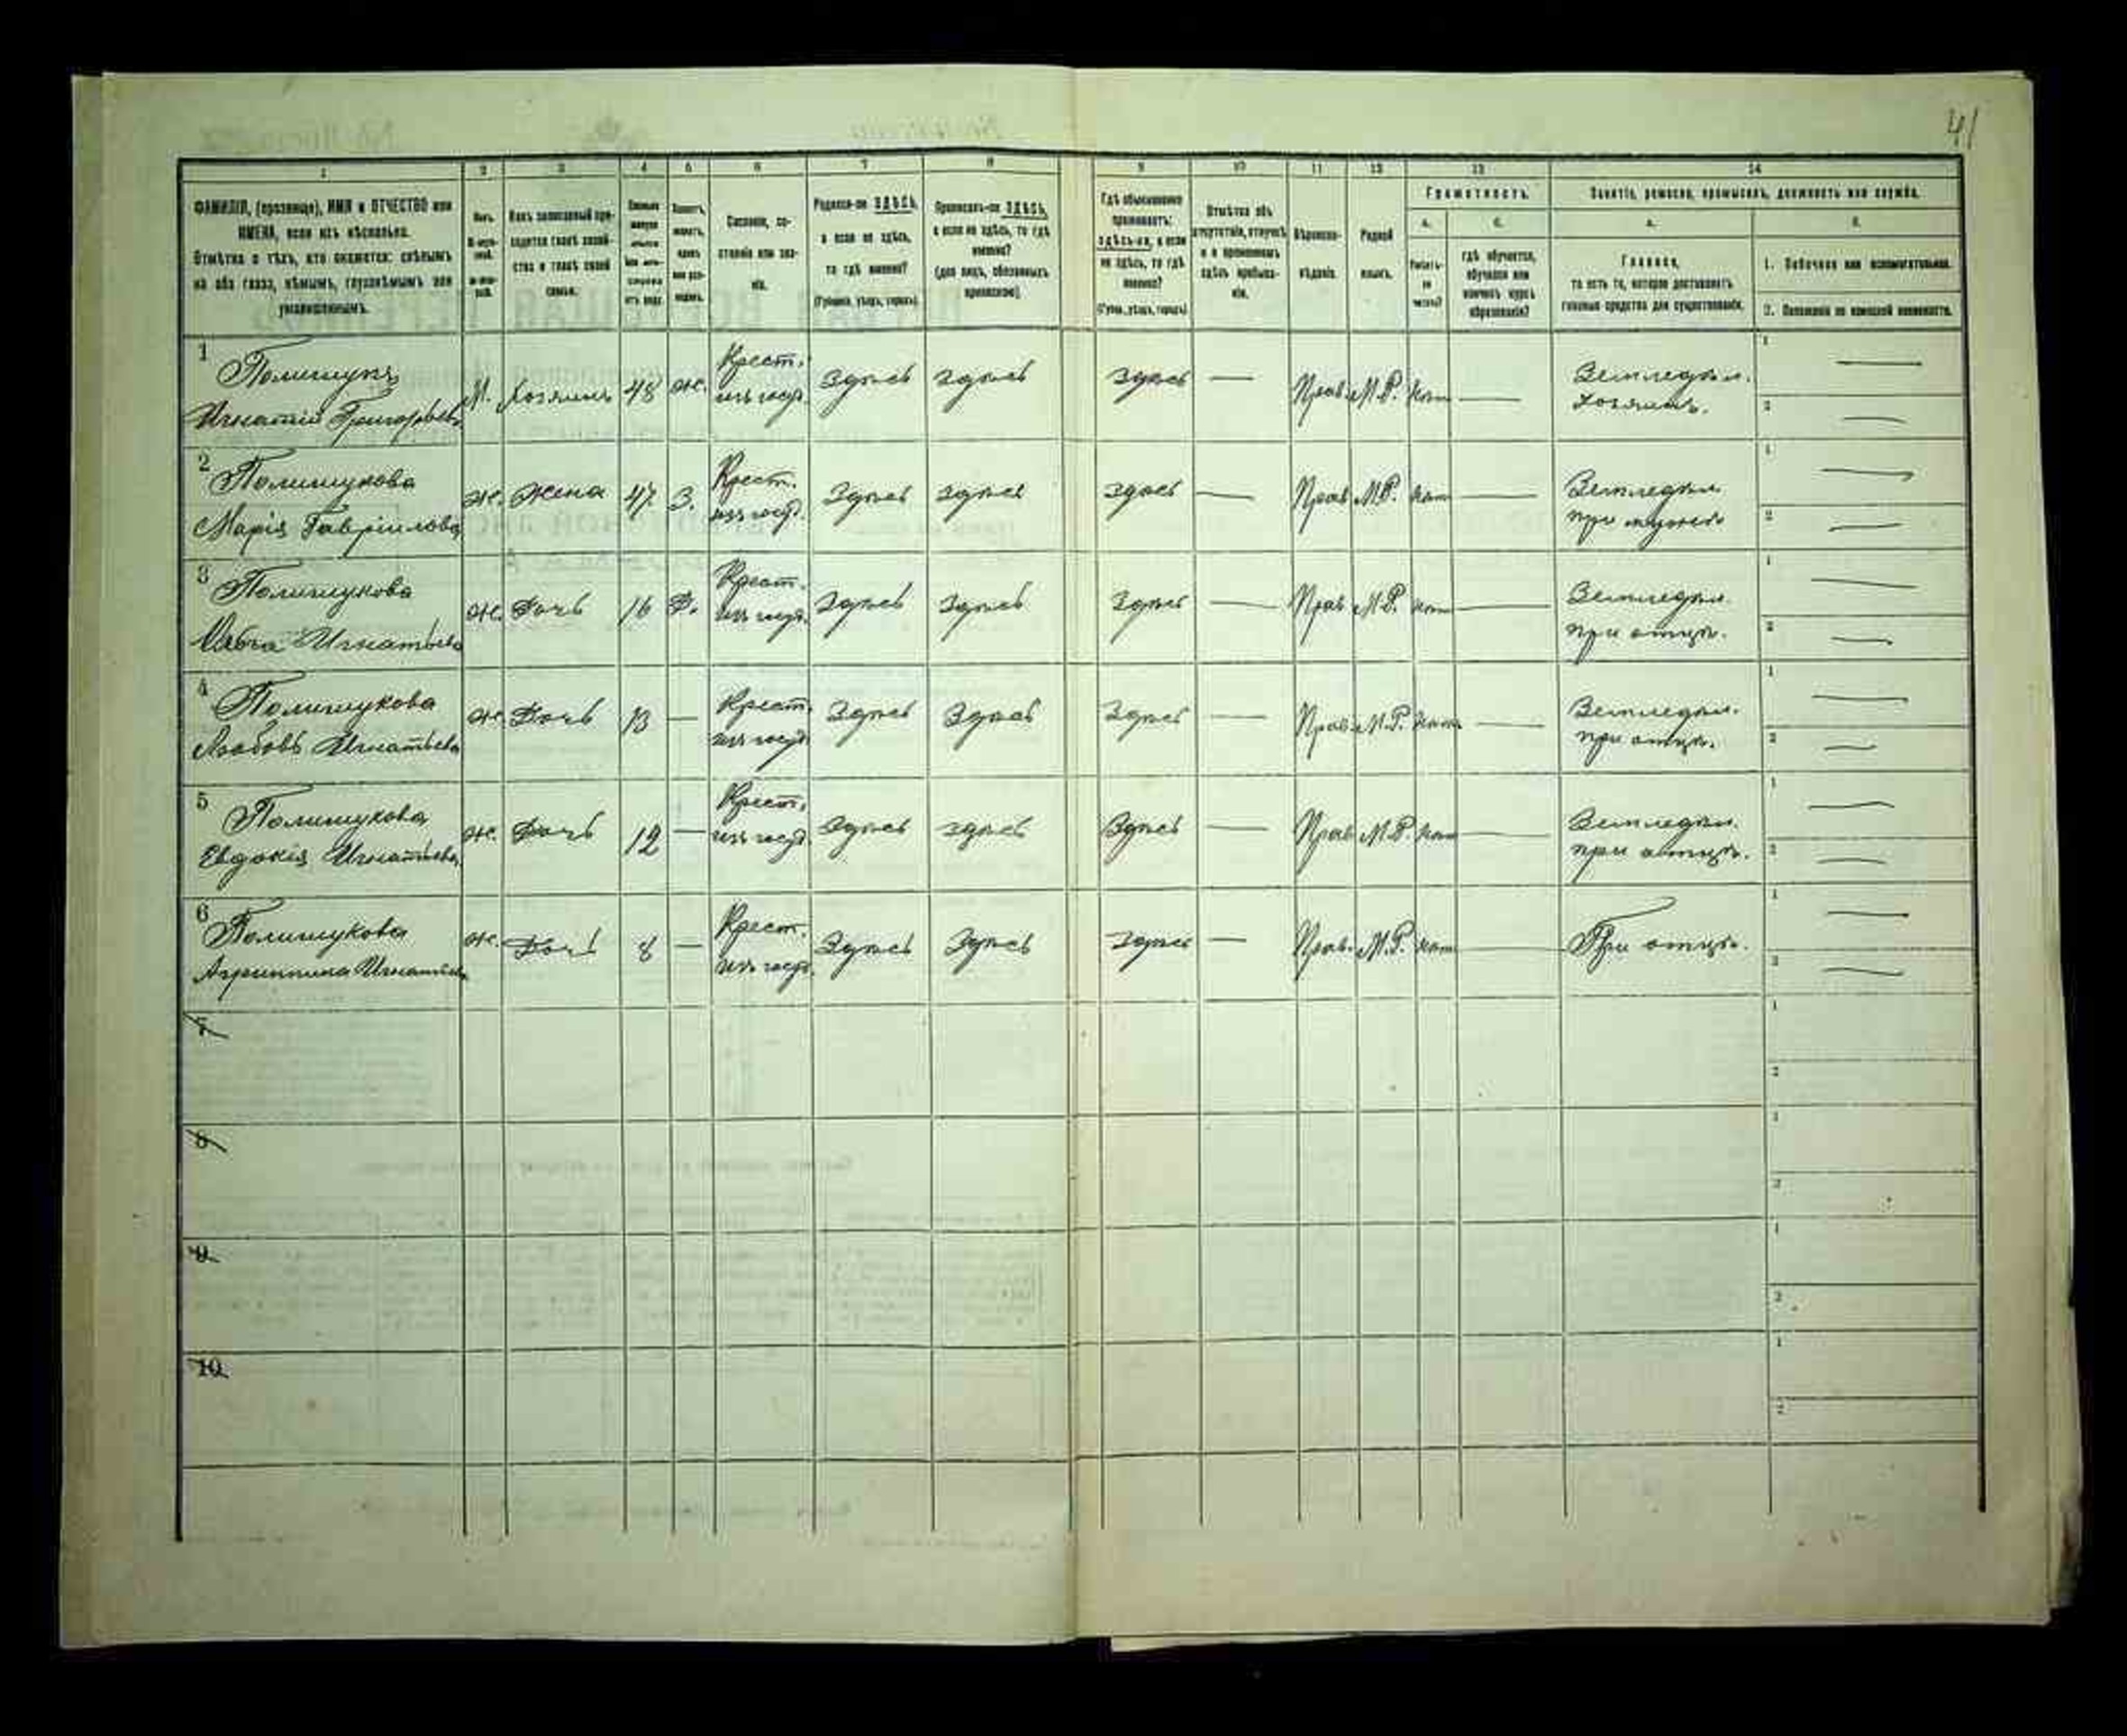 41
1 2 3 4 5 6 7 8 9 10 11 12 13 14
ФАМИЛІЯ, (прозвище), ИМЯ и ОТЧЕСТВО или
ИМЕНА, если ихъ нѣсколько.
Отмѣтка о тѣхъ, кто окажется: слѣпымъ
на оба глаза, нѣмымъ, глухонѣмымъ или
умалишеннымъ.
Сословіе, со-
стояніе или зва-
ніе.
Родился-ли ЗДѢСЬ,
а если не здѣсь,
то гдѣ именно?
(Губернія, уѣздъ, городъ).
Приписанъ-ли ЗДѢСЬ,
а если не здѣсь, то гдѣ
именно?
(для лицъ, обязанныхъ
припиской)
Гдѣ обыкновенно
проживаетъ:
здѣсь-ли, а если
не здѣсь, то гдѣ
именно?
(Губ., уѣздъ, городъ)
Отмѣтка объ
отсутствіи, отлучкѣ
и о временномъ
здѣсь пребыва-
ніи.
Вѣроиспо-
вѣданіе.
Родной
языкъ.
Грамотность.
а. б.
гдѣ обучается,
обучался или
кончилъ курсъ
образованія?
Занятіе, ремесло, промыселъ, должность или служба.
а. б.
Главное,
то есть то, которое доставляетъ
главныя средства для существованія.
1. Побочное или вспомогательное.
2. Положеніе по воинской повинности.
1 Полищукъ
Игнатій Григорьевъ М. Хозяинъ 48 ж. Крест. изъ госуд. Здѣсь Здѣсь Здѣсь — Прав. М.Р. нѣт — Земледѣл. хозяинъ.
2 Полищукова
Марія Гавріилова ж. Жена 47 З. Крест. изъ госуд. Здѣсь Здѣсь Здѣсь — Прав. М.Р. нѣт — Земледѣл. при мужѣ
3 Полищукова
Ольга Игнатьева ж. Дочь 16 Д. Крест. изъ госуд. Здѣсь Здѣсь Здѣсь — Прав. М.Р. нѣт — Земледѣл. при отцѣ.
4 Полищукова
Любовь Игнатьева ж. Дочь 13 — Крест. изъ госуд. Здѣсь Здѣсь Здѣсь — Прав. М.Р. нѣт — Земледѣл. при отцѣ.
5 Полищукова
Евдокія Игнатьева ж. Дочь 12 — Крест. изъ госуд. Здѣсь Здѣсь Здѣсь — Прав. М.Р. нѣт — Земледѣл. при отцѣ.
6 Полищукова
Агриппина Игнатьева ж. Дочь 8 — Крест. изъ госуд. Здѣсь Здѣсь Здѣсь — Прав. М.Р. нѣт — При отцѣ.
7
8
9
10